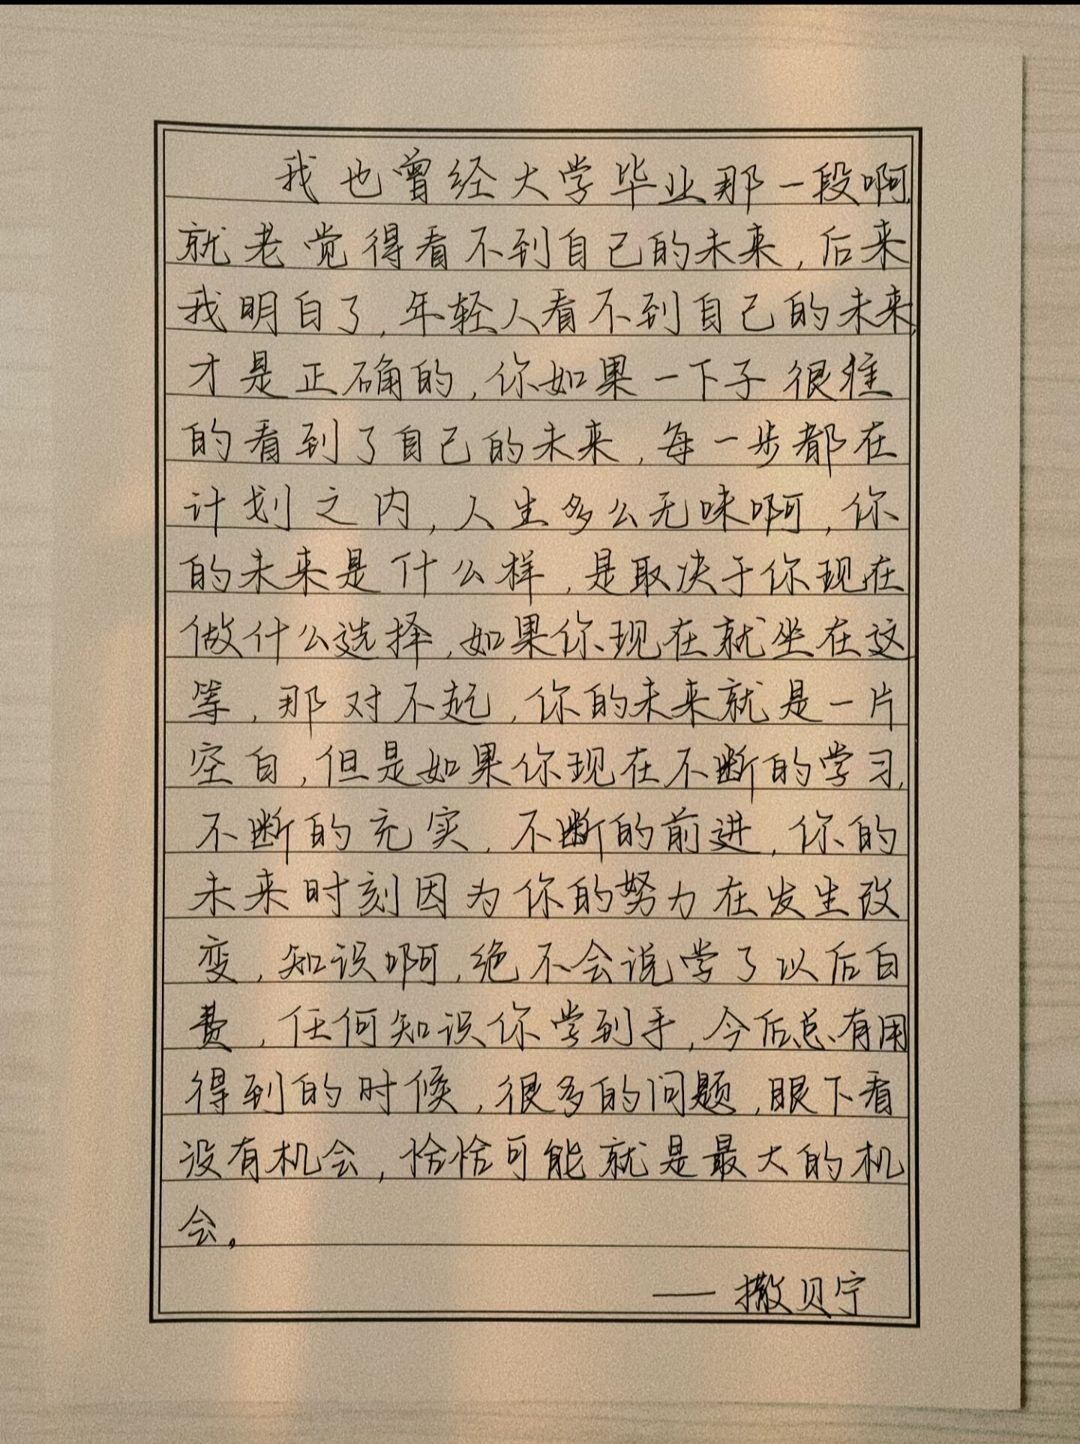 我也曾经大学毕业那一段啊,
就老觉得看不到自己的未来,后来
我明白了,年轻人看不到自己的未来,
才是正确的,你如果一下子很准
的看到了自己的未来,每一步都在
计划之内,人生多么无味啊,你
的未来是什么样,是取决于你现在
做什么选择,如果你现在就坐在这
等,那对不起,你的未来就是一片
空白,但是如果你现在不断的学习,
不断的充实,不断的前进,你的
未来时刻因为你的努力在发生改
变,知识啊,绝不会说学了以后白
费,任何知识你学到手,今后总有用
得到的时候,很多的问题,眼下看
没有机会,恰恰可能就是最大的机
会。
——撒贝宁